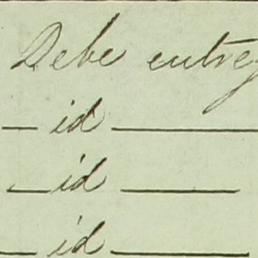 Debe entreg
— id —
— id —
— id —